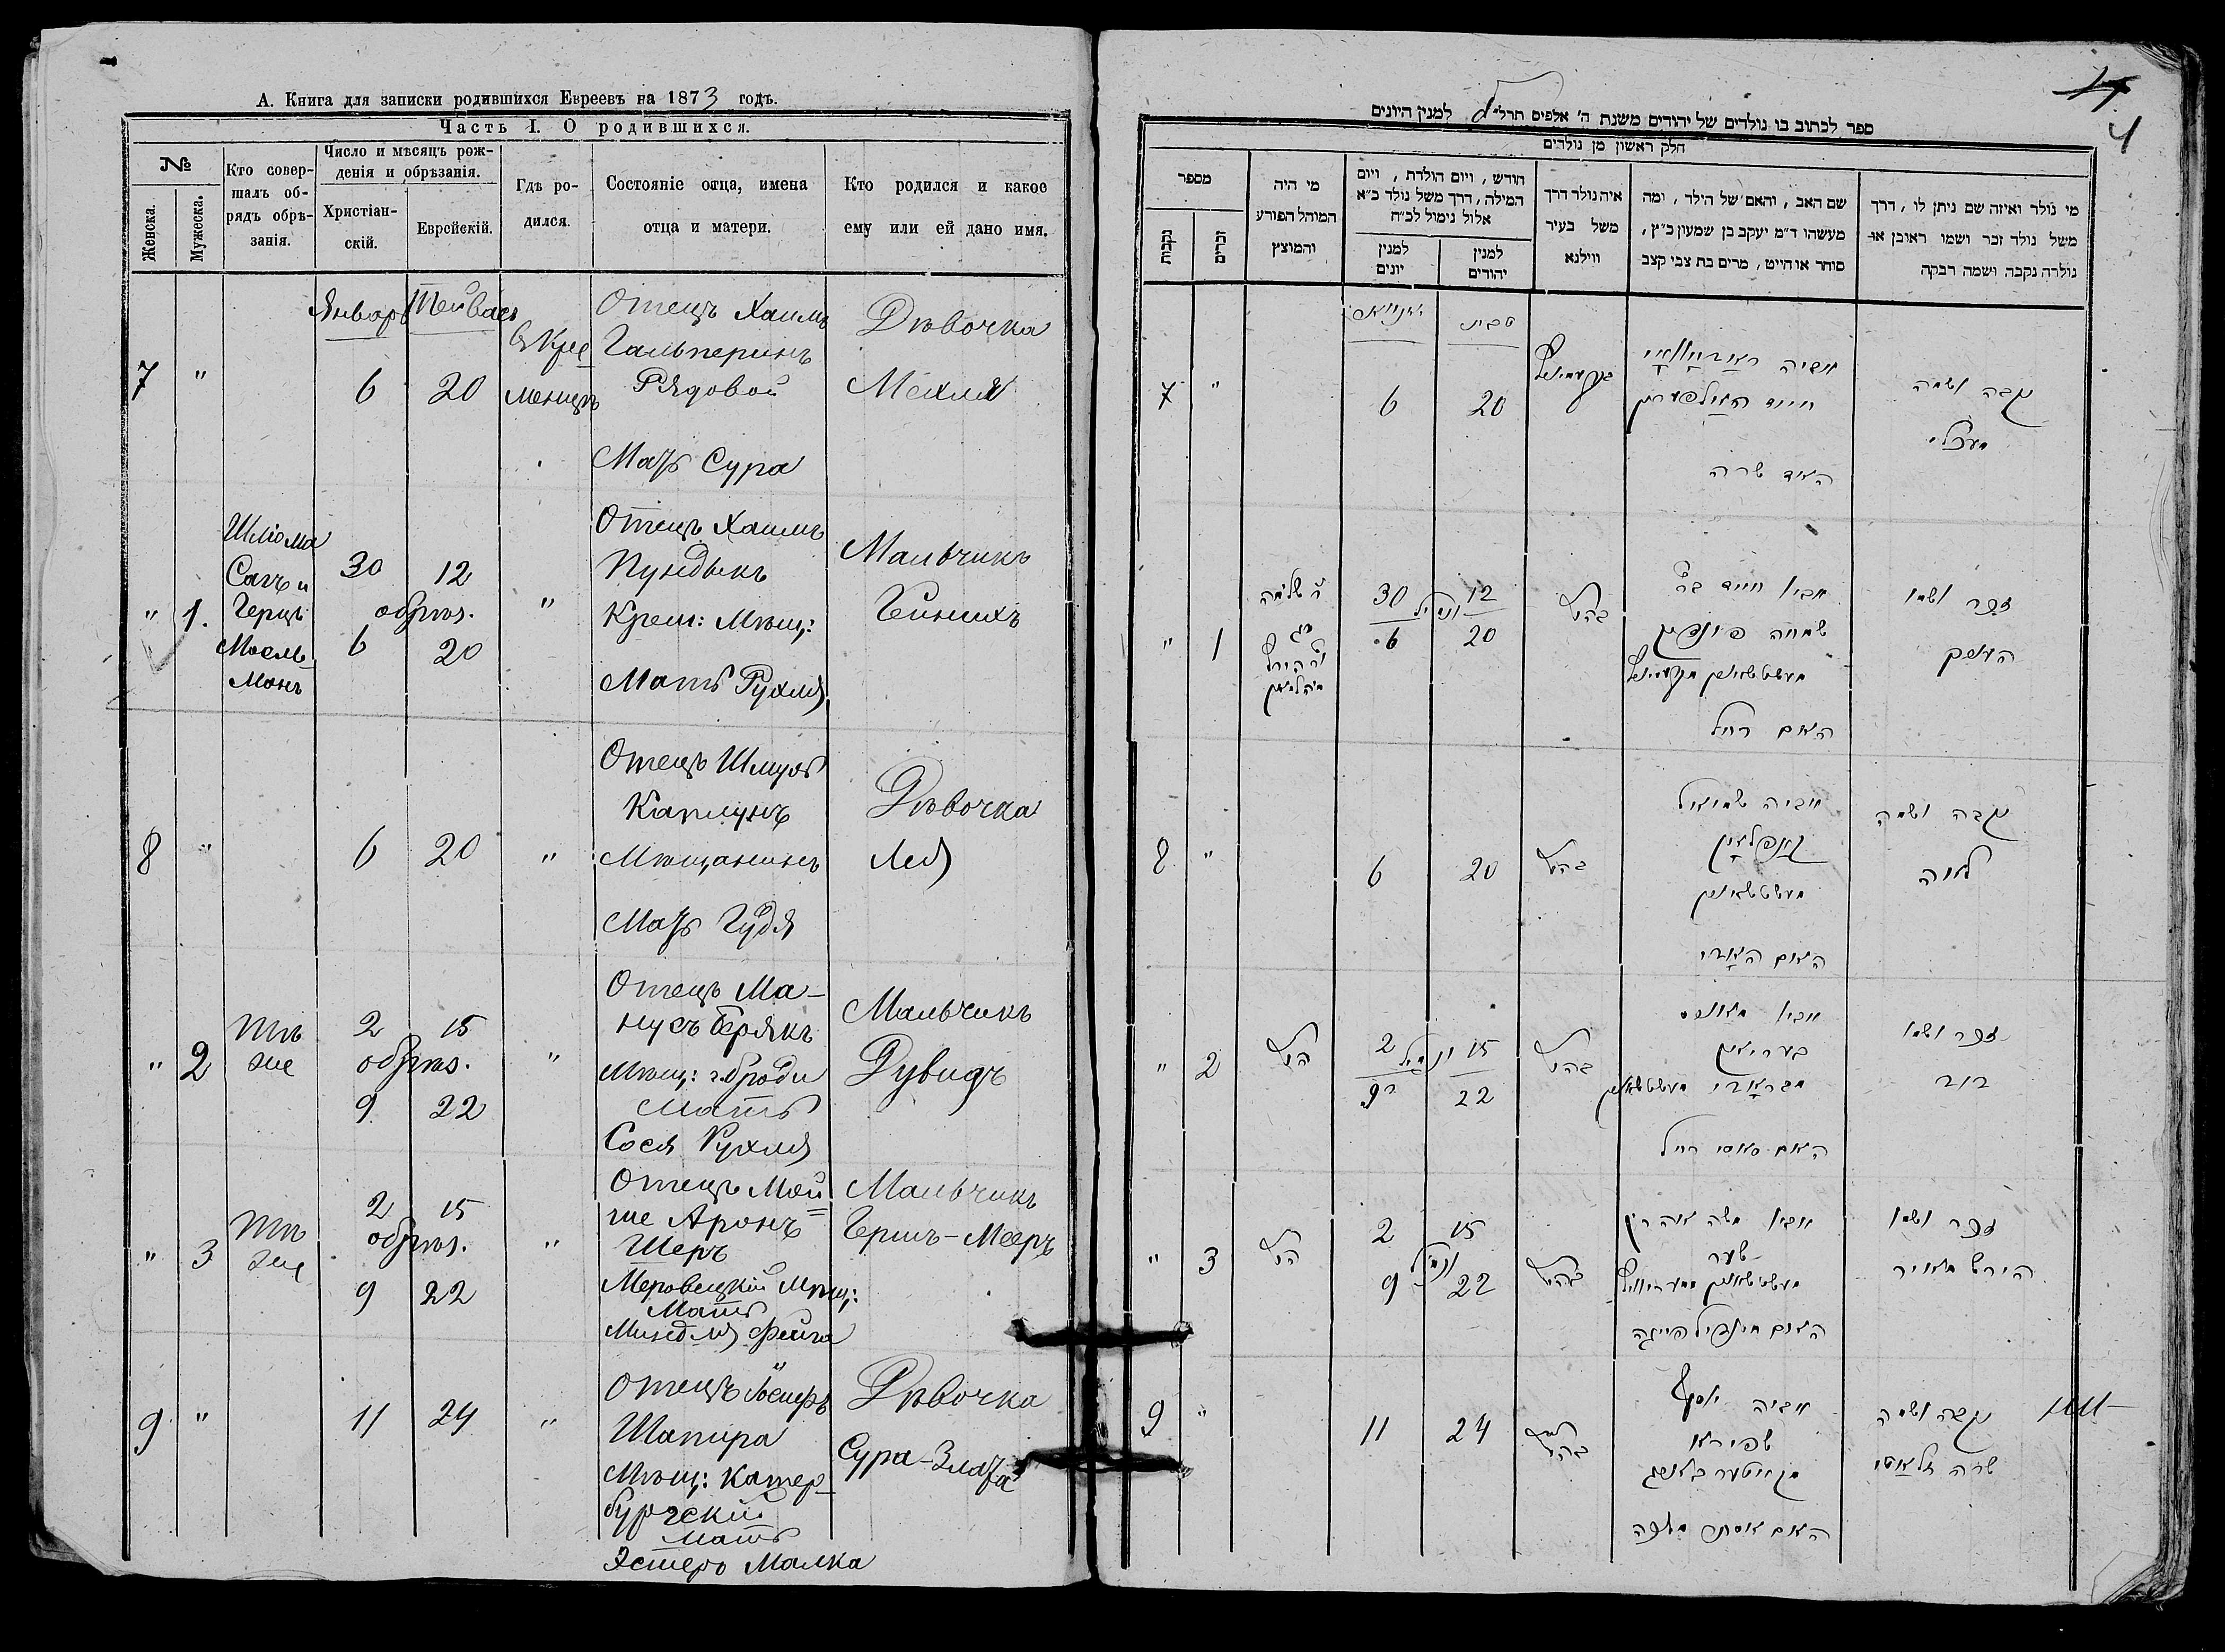 А. Книга для записки родившихся Евреевъ на 1873 годъ.
Часть I. О родившихся.
№
Женска.
Мужеска.
Кто совер-
шалъ об-
рядъ обрѣ-
занія.
Число и мѣсяцъ рож-
денія и обрѣзанія.
Христіан-
скій.
Еврейскій.
Гдѣ ро-
дился.
Состояніе отца, имена
отца и матери.
Кто родился и какое
ему или ей дано имя.
Январь Тейвас
7 " 6 20
в Кре
менцѣ
Отецъ Хаимъ
Гальперинъ
Рядовой
Мать Сура
Дѣвочка
Мехля
" 1.
Шліома
Сатъ и
Герцъ
30 12
обрѣз.
6 20
"
Отецъ Хаимъ
Пундыкъ
Крем: Мѣщ:
Мать Рухля
Мальчикъ
Гейнихъ
8 " 6 20 "
Отецъ Шмуль
Каплунъ
Мѣщанинъ
Мать Гудя
Дѣвочка
Лея
" 2
Тѣ
же
2 15
обрѣз.
9 22
"
Отецъ Ма-
нусъ Берякъ
Мѣщ: г. Броди
Мать
Сося Рухля
Мальчикъ
Дувидъ
" 3
Тѣ
же
2 15
обрѣз.
9 22
"
Отецъ Мой
ше Аронъ
Шеръ
Мать
Миндля Фейга
Мальчикъ
Гершъ-Мееръ
9 " 11 24 "
Отецъ Іосифъ
Шапира
Мѣщ: Катер-
бургскій
Мать
Эстеръ Малка
Дѣвочка
Сура-Злата
4
ספר לכתוב בו נולדים של יהודים משנת ה' אלפים תרל"ג למנין היונים
חלק ראשון מן נולדים
מספר
נקבות
זכרים
מי היה
המוהל הפורע
והמוצץ
חודש, ויום הולדת, ויום
המילה, דרך משל נולד כ"א
אלול נימול לכ"ח
למנין
יונים
למנין
יהודים
איה נולד דרך
משל בעיר
ווילנא
שם האב, והאם של הילד, ומה
מעשהו ד"מ יעקב בן שמעון כ"ץ,
סוחר או חייט, מרים בת צבי קצב
מי נולד ואיזה שם ניתן לו, דרך
משל נולד זכר ושמו ראובן או
נולדה נקבה ושמה רבקה
טבת
7 " 6 20
חיים האלפערין
האם שרה
נקבה ושמה
מעכלי
" 1
ר שלימה
30 12
ונימול
6 20
אביו חיים
שמחה פונדיק
האם רחל
זכר ושמו
העניך
8 " 6 20
אביה שמואל
קאפלאן
מעשטשאנין
נקבה ושמה
לאה
" 2
2 15
ונימול
9 22
אביו מאנוס
בעריאק
האם סאסי רחל
זכר ושמו
דוד
" 3
2 15
ונימול
9 22
אביו משה אהרן
שער
האם מינדיל פייגה
זכר ושמו
הירש מאיר
9 " 11 24
אביה יוסף
שפירא
האם אסתר מלכה
נקבה ושמה
שרה זלאטי